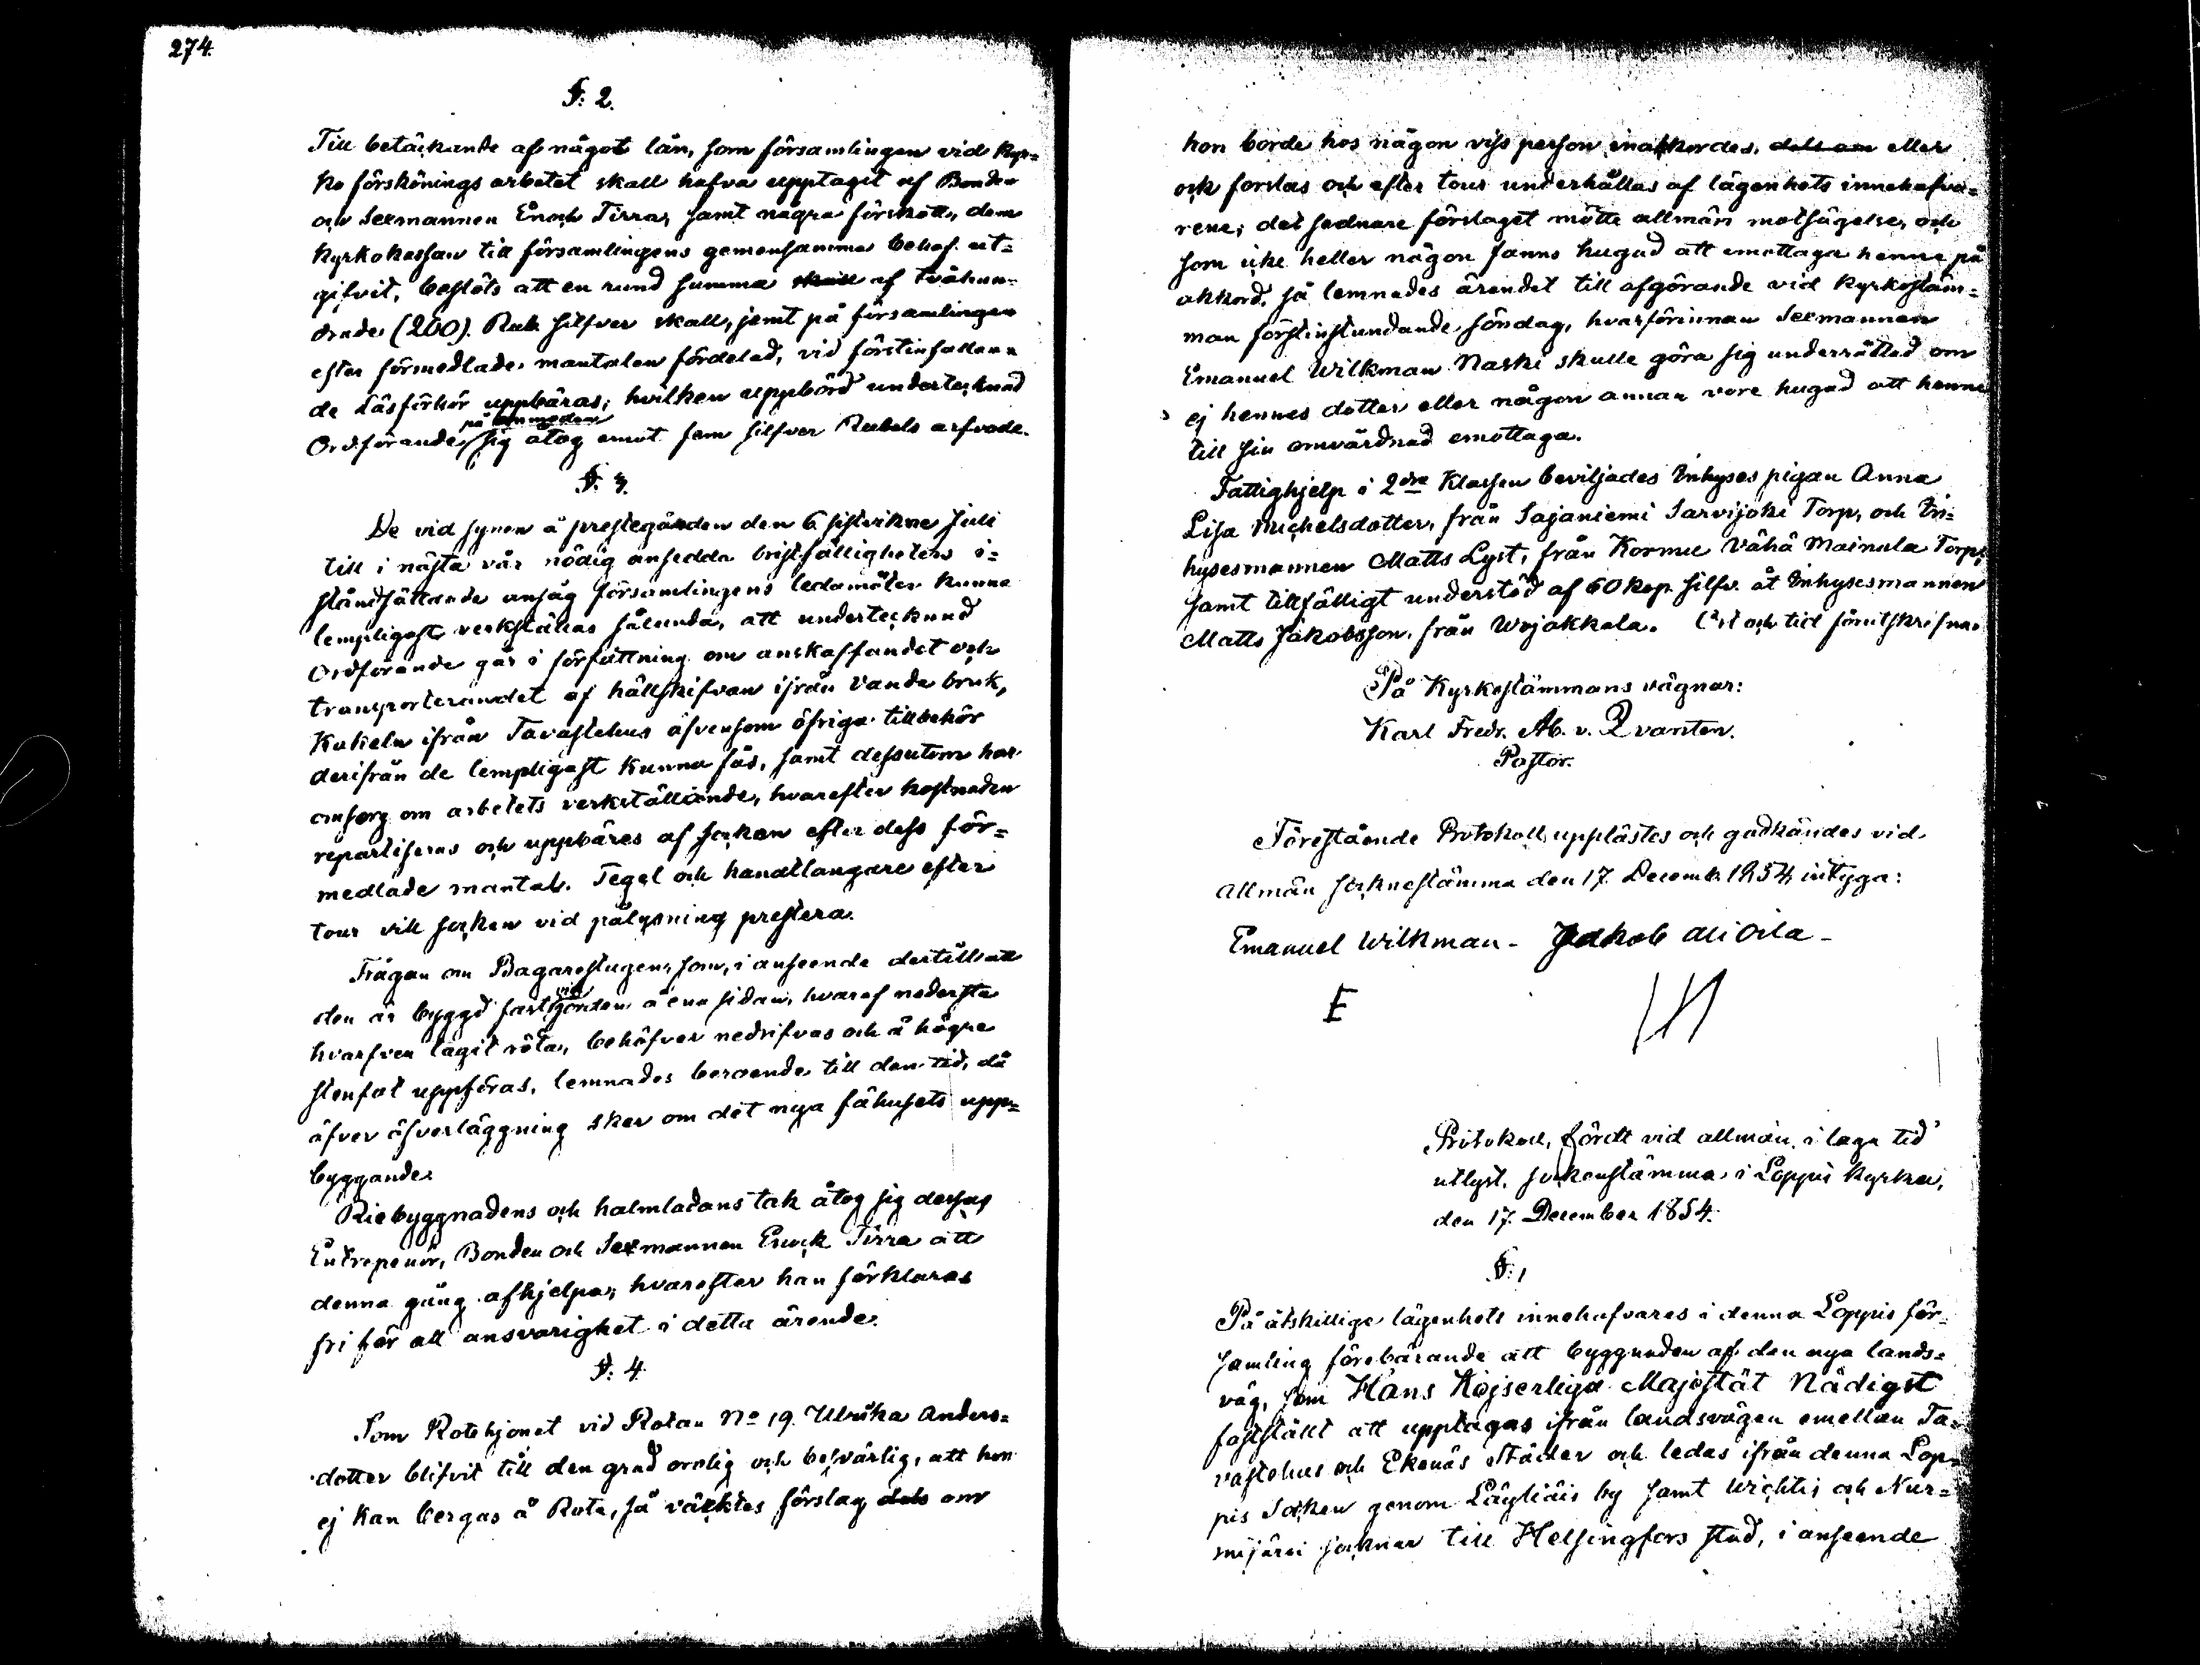 274.
§: 2.
Till betäckande af något lån, som församlingen vid kyr=
ko förskönings arbetet skall hafva upptagit af Bonden
och Sexmannen Enoch Tirra, samt några förskott, dem
kyrkokassan till församlingens gemensamma behof ut=
gifvit, beslöts att en rund summa af tvåhun=
drade (200). Rub silfver skall, jemt på församlingen
efter förmedlade mantalen fördelad, vid förstinfallan=
de Läsförhör uppbäras; hvilken uppbörd undertecknad
på anmodan
Ordförande sig åtog emot fem silfver Rubels arfvode.
§. 3.
De vid synen å prestegården den 6 sistvikne Juli
till i nästa vår nödig ansedda bristfälligheters i=
ståndsättande ansåg församlingens ledamöter kunna
lempligast verkställas sålunda, att undertecknad
Ordförande går i författning om anskaffandet och
transporterandet af hällskifvan ifrån Vanda bruk,
Kakeln ifrån Tavastehus äfvensom öfriga tillbehör
derifrån de lempligast kunna fås, samt dessutom har
omsorg om arbetets verkställande, hvarefter kostnaden
repartiseras och uppbäres af socknen efter dess för=
medlade mantal. Tegel och handtlangare efter
tour vill socknen vid pålysning prestera.
Frågan om Bagarestugen, som, i anseende dertill att
den är byggd fast vid jorden å ena sidan, hvaraf nedersta
hvarfven tagit röta, behöfver nedrifvas och å högre
stenfot uppföras, lemnades beroende till den tid, då
äfven öfverläggning sker om det nya fähusets upp=
byggande.
Riebyggnadens och halmladans tak åtog sig dessas
Entrepenör, Bonden och Sexmannen Enock Tirra att
denna gång afhjelpa, hvarefter han förklaras
fri för all ansvarighet i detta ärende.
§: 4.
Som Rotehjonet vid Rotan No 19. Ulrika Anders=
dotter blifvit till den grad orolig och besvärlig, att hon
ej kan bergas å Rote, så väcktes förslag dels om
hon borde hos någon viss person inackordes, dels om eller
ock forslas och efter tour underhållas af lägenhets innehafva=
rene; det sednare förslaget mötte allmän motsägelse, och
som icke heller någon fanns hugad att emottaga henne på
akkord, så lemnades ärendet till afgörande vid kyrkostäm=
man förstinstundande söndag, hvarförinnan Sexmannen
Emanuel Wilkman Naski skulle göra sig underrättad om
ej hennes dotter eller någon annan vore hugad att henne
till sin omvårdnad emottaga.
Fattighjelp i 2dra Klassen beviljades Inhyses pigan Anna
Lisa Michelsdotter, från Sajaniemi Sarvijoki Torp, och In=
hysesmannen Matts Lyst, från Kormu Vähä Mainula Torp,
samt tillfälligt understöd af 60 kop. silfv. åt Inhysesmannen
Matts Jakobsson, från Wojakkala. och tid förutskrifna.
På Kyrkostämmans vägnar:
Karl Fredr. Ab. v. Qvanten.
Pastor.
Förestående Protokoll upplästes och godkändes vid
allmän socknestämma den 17. Decemb. 1854, intyga:
Emanuel Wilkman - Jakob Ali Oila -
E
Protokoll, fördt vid allmän, i laga tid
utlyst, sockenstämma i Loppis kyrka,
den 17. December 1854.
§: 1
På åtskillige lägenhets innehafvares i denna Loppis för=
samling förebärande att byggnaden af den nya lands=
väg, som Hans Kejserliga Majestät Nådigst
fastställt att upptagas ifrån landsvägen emellan Ta=
vastehus och Ekenäs Städer och ledas ifrån denna Lop=
pis Socken genom Läyliäis by samt Wichtis och Nur=
mijärvi socknar till Helsingfors stad, i anseende